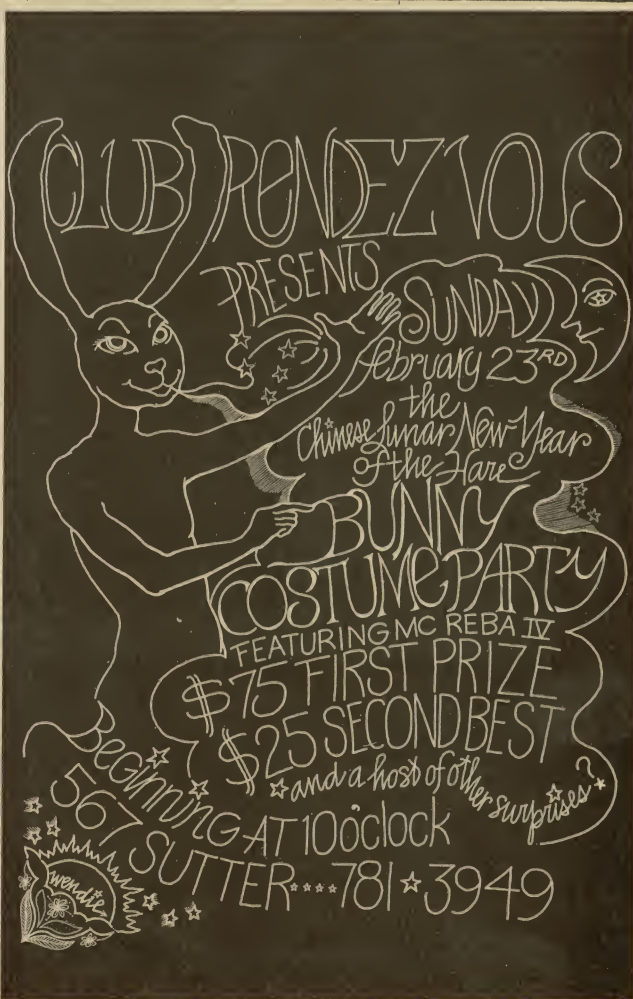 CLUB RENDEZVOUS
PRESENTS
SUNDAY
february 23RD
the
Chinese Lunar New Year
of the Hare
BUNNY
COSTUME PARTY
FEATURING MC REBA IV
$75 FIRST PRIZE
$25 SECOND BEST
and a host of other surprises?
Beginning AT 10 o'clock
567 SUTTER....781 3949
wendie